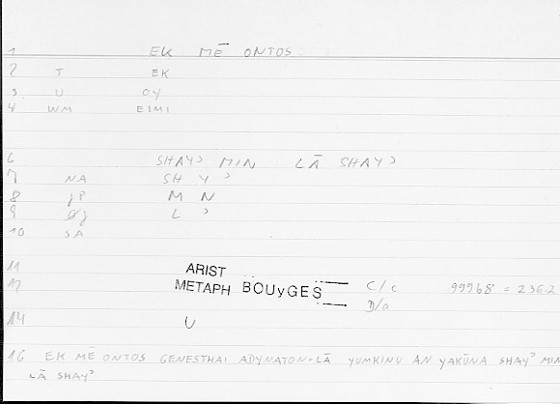 1 EK MĒ ONTOS
2 T EK
3 U OY
4 WM EIMI
6 SHAYʾ MIN LĀ SHAYʾ
7 NA SH Y ʾ
8 JP M N
9 L ʾ
10 SA
11 ARIST
12 METAPH BOUYGES C/c 99968 = 236.2
D/a
14 U
16 EK MĒ ONTOS GENESTHAI ADYNATON - LĀ YUMKINU AN YAKŪNA SHAYʾ MIN
LĀ SHAYʾ